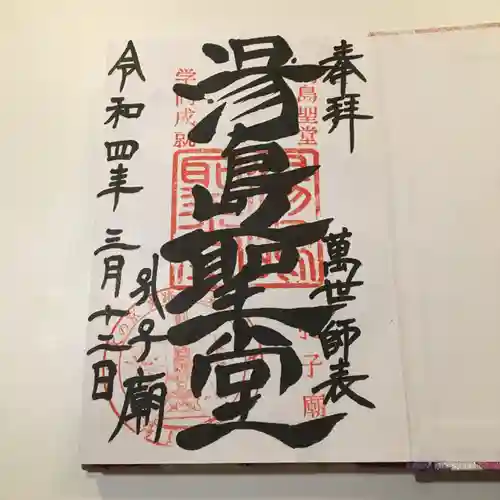 奉拝
萬世師表
湯島聖堂
孔子廟
令和四年三月十二日
湯島聖堂
孔子廟
学問成就